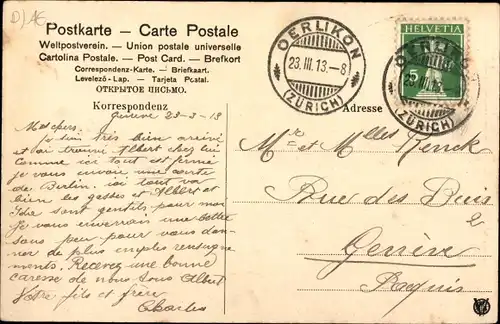 D) AE
Postkarte — Carte Postale
Weltpostverein. — Union postale universelle
Cartolina Postale. — Post Card. — Brefkort
Correspondenz-Karte. — Briefkaart.
Levelező-Lap. — Tarjeta Postal.
ОТКРЫТОЕ ПИСЬМО.
OERLIKON
23.III.13–8
(ZÜRICH)
HELVETIA
5
OERLIKON
23.III.13
(ZÜRICH)
Korrespondenz
Adresse
23-3-13
Mes chers,
Je suis très bien arrivé
et ai trouvé Albert chez lui
Comme ici tout est fermé
je vous envoie une carte
de Berlin. ici tout va
bien les gosses et Albert et
Ida sont gentils pour moi
Je vous enverrai une lettre
sous peu pour vous don-
ner de plus amples renseigne-
ments. Recevez une bonne
caresse de nous tous Albert
Votre fils et frère
Charles
Mr et Mlles
Rue des Buis
2
Genève
Pâquis